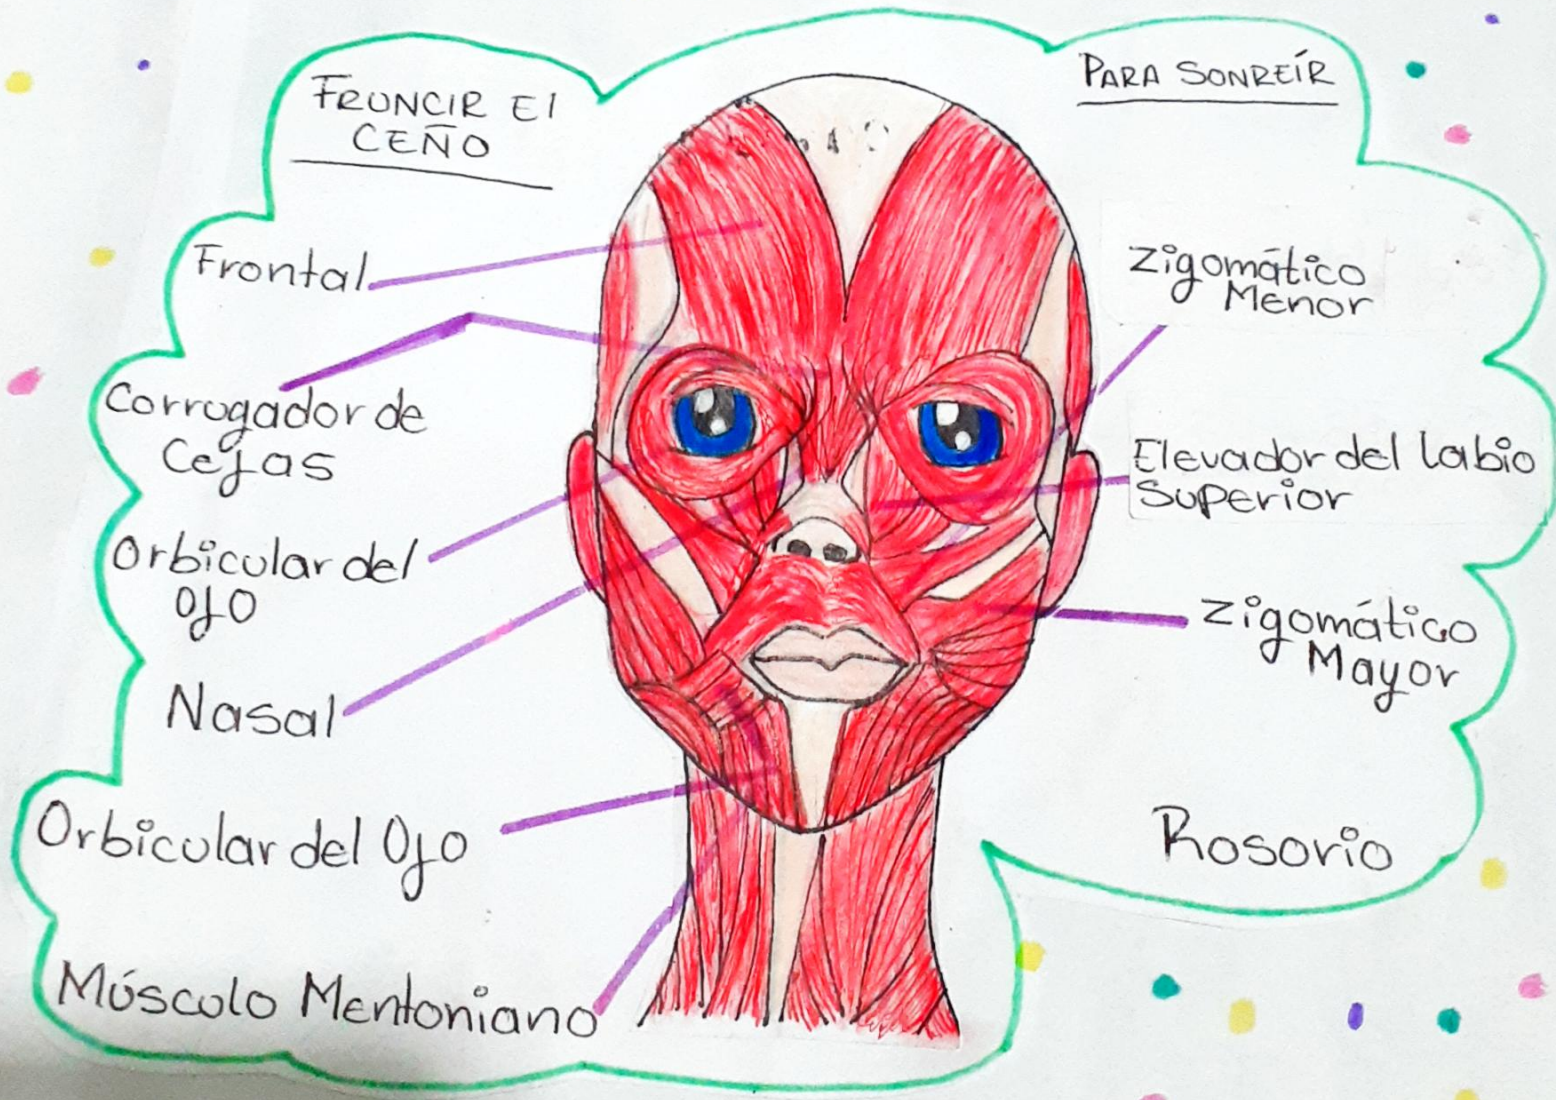 FRUNCIR El
CEÑO
Frontal
Corrugador de
Cejas
Orbicular del
Ojo
Nasal
Orbicular del Ojo
Músculo Mentoniano
PARA SONREÍR
Zigomático
Menor
Elevador del labio
Superior
Zigomático
Mayor
Rosorio